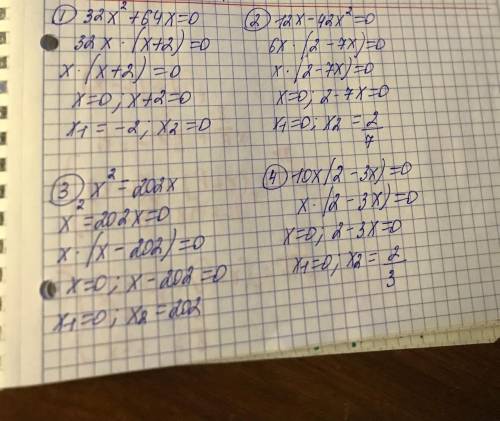 ① 32x² + 64x = 0
32x · (x+2) = 0
x · (x+2) = 0
x=0 ; x+2=0
x1 = -2 ; x2 = 0
② 12x - 42x² = 0
6x · (2 - 7x) = 0
x · (2-7x) = 0
x=0 ; 2-7x=0
x1=0 ; x2 = 2/7
③ x² = 202x
x² = 202x = 0
x · (x - 202) = 0
x=0 ; x - 202 = 0
x1=0 ; x2 = 202
④ 10x(2 - 3x) = 0
x · (2 - 3x) = 0
x=0 ; 2-3x=0
x1=0 ; x2 = 2/3